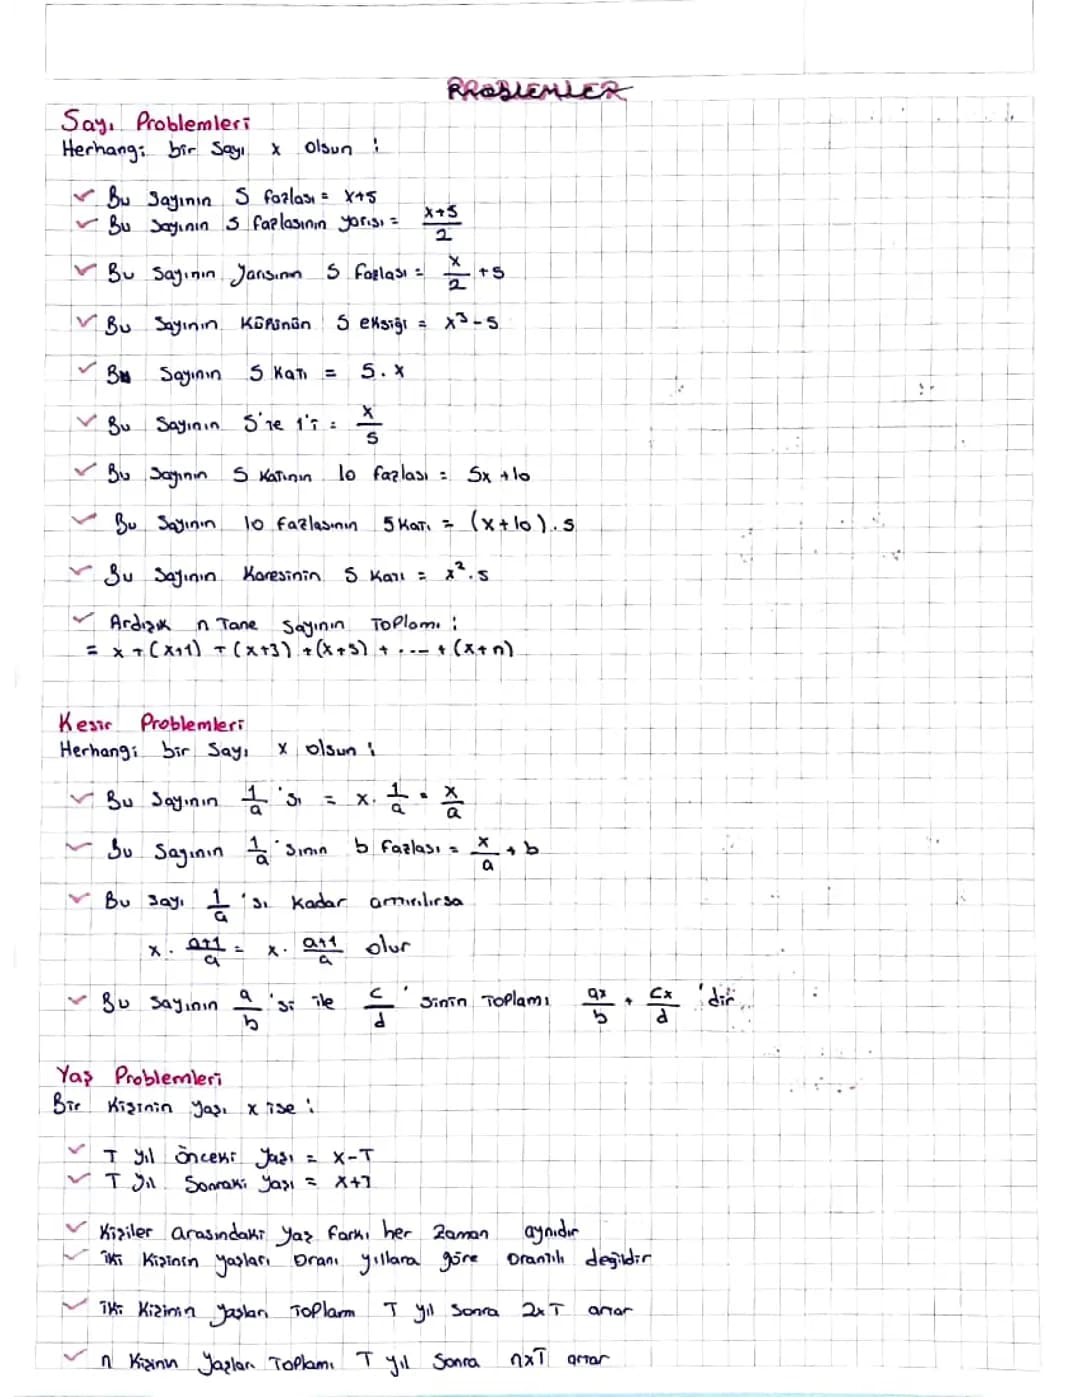 PROBLEMLER
Sayı Problemleri
Herhangi bir sayı x olsun :
Bu sayının 5 fazlası = x+5
Bu sayının 5 fazlasının yarısı = \frac{x+5}{2}
Bu sayının yarısının 5 fazlası = \frac{x}{2} + 5
Bu sayının küpünün 5 eksiği = x³ - 5
Bu sayının 5 katı = 5 . x
Bu sayının 5'te 1'i = \frac{x}{5}
Bu sayının 5 katının 10 fazlası = 5x + 10
Bu sayının 10 fazlasının 5 katı = (x+10) . 5
Bu sayının karesinin 5 katı = x² . 5
Ardışık n tane sayının toplamı :
= x + (x+1) + (x+3) + (x+5) + .... + (x+n)
Kesir Problemleri
Herhangi bir sayı x olsun :
Bu sayının \frac{1}{a} 'sı = x . \frac{1}{a} = \frac{x}{a}
Bu sayının \frac{1}{a} 'sının b fazlası = \frac{x}{a} + b
Bu sayı \frac{1}{a} 'sı kadar artırılırsa
x . \frac{a+1}{a} = x . \frac{a+1}{a} olur
Bu sayının \frac{a}{b} 'si ile \frac{c}{d} ' sinin toplamı \frac{ax}{b} + \frac{cx}{d} 'dir..
Yaş Problemleri
Bir kişinin yaşı x ise :
T yıl önceki yaşı = x-T
T yıl sonraki yaşı = x+T
Kişiler arasındaki yaş farkı her zaman aynıdır
iki kişinin yaşları oranı yıllara göre orantılı değildir
iki kişinin yaşları toplamı T yıl sonra 2xT artar
n kişinin yaşları toplamı T yıl sonra nxT artar